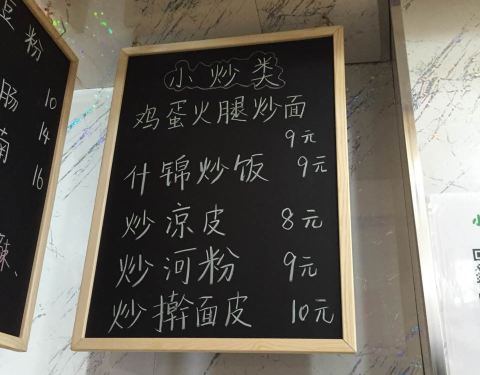 小炒类
鸡蛋火腿炒面
9元
什锦炒饭 9元
炒凉皮 8元
炒河粉 9元
炒擀面皮 10元
豆粉
肠 10
14
16
辣、
小